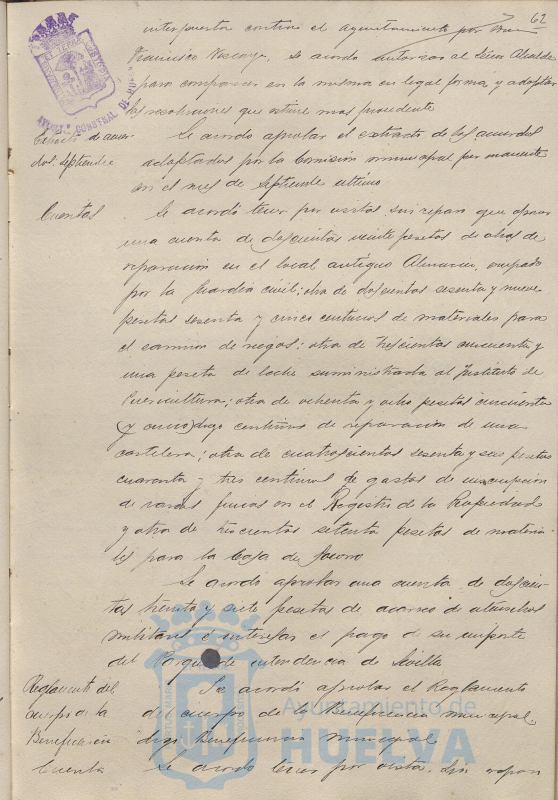 62
interpuesta contra el Ayuntamiento por Don
Francisco Vizcaya, se acordó autorizar al Señor Alcalde
para comparecer en la misma en legal forma y adoptar
las resoluciones que estime mas procedente
Extracto de acuer
dos. septiembre
Se acordo aprobar el extracto de los acuerdos
adoptados por la Comisión municipal permanente
en el mes de Septiembre ultimo
Cuentas
Se acordó tener por vistas sin reparo que oponer
una cuenta de doscientas veinte pesetas de obras de
reparación en el local antiguo Almacen, ocupado
por la Guardia civil; otra de doscientas sesenta y nueve
pesetas sesenta y cinco centimos de materiales para
el camion de riegos; otra de trescientas cincuenta y
una peseta de leche suministrada al Instituto de
Puericultura; otra de ochenta y ocho pesetas cincuenta
(y cinco) digo centimos de reparación de una
cartelera; otra de cuatrocientas sesenta y seis pesetas
cuarenta y tres centimos de gastos de inscripcion
de varias fincas en el Registro de la Propiedad
y otra de trescientas setenta pesetas de materia
les para la Casa de Socorro
Se acordó aprobar una cuenta de doscien-
tas treinta y siete pesetas de acarreo de utensilios
militares e interesar el pago de su importe
del Parque de intendencia de Sevilla
Reglamento del
cuerpo de la
Beneficencia
Se acordó aprobar el Reglamento
del cuerpo de Beneficencia municipal,
digo Beneficencia municipal
Cuenta
Se acordo tener por vista, sin reparo
Ayuntamiento de
HUELVA